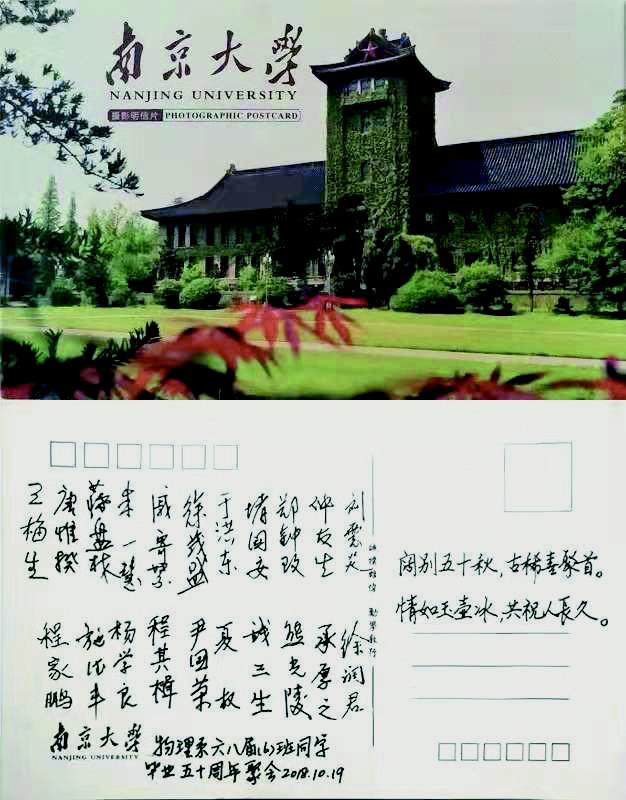 南京大學
NANJING UNIVERSITY
摄影明信片 PHOTOGRAPHIC POSTCARD
仲友生
郑钟
国安
于洪东
徐盛
戚
一慧
蒋盘林
唐惟
王梅生
徐润君
承厚之
熊光陵
钱三生
夏
尹国荣
程其楫
杨学良
施
程家鹏
誠樸雄偉 勵學敦行
阔别五十秋，古稀喜聚首。
情如玉壶冰，共祝人长久。
南京大學
NANJING UNIVERSITY
物理系六八届(6)班同学
毕业五十周年聚会2018.10.19